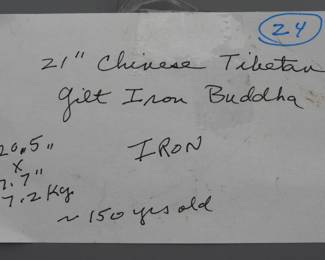 24
21" Chinese Tibetan
Gilt Iron Buddha
IRON
20.5"
x
7.7"
7.2 Kg
~ 150 yrs old